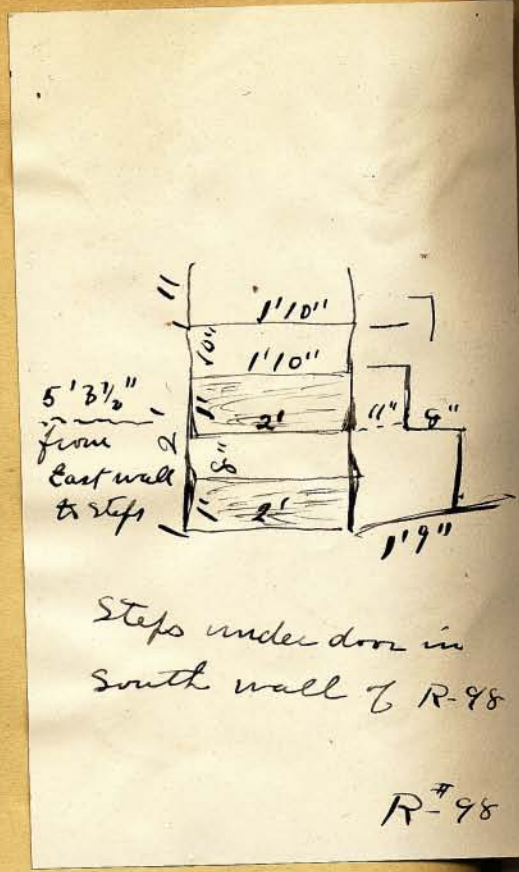 11
1'10"
10"
1'10"
5' 3½"
from
East wall
to Steps
2'
1'
2'
11"
8"
8"
1'
2'
1'9"
Steps under door in
South wall of R-98
R-#98